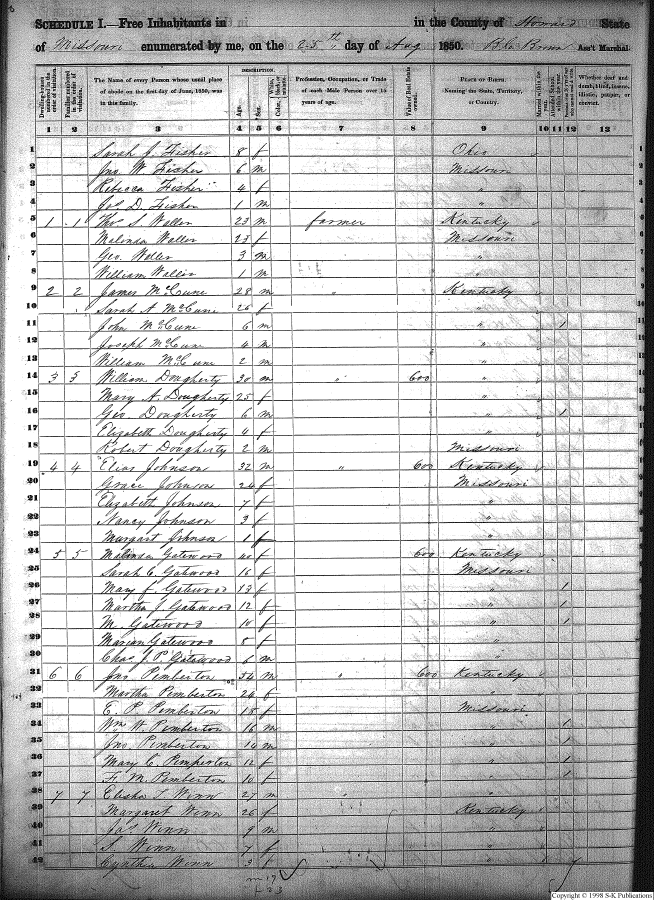 SCHEDULE I.—Free Inhabitants in in the County of Howard State
of Missouri enumerated by me, on the 25th day of Aug 1850. Ass't Marshal.
Dwelling-houses numbered in the order of visitation.
Families numbered in the order of visitation.
The Name of every Person whose usual place of abode on the first day of June, 1850, was in this family.
DESCRIPTION.
Age.
Sex.
Color,
Profession, Occupation, or Trade of each Male Person over 15 years of age.
Value of Real Estate owned.
PLACE OF BIRTH. Naming the State, Territory, or Country.
Married within the year.
Whether deaf and dumb, blind, insane, idiotic, pauper, or convict.
1 2 3 4 5 6 7 8 9 10 11 12 13
1 Sarah J. Fisher 8 f Ohio
2 Jno. W. Fisher 6 m Missouri
3 Rebecca Fisher 4 f "
4 Jos D. Fisher 1 m "
5 1 1 Thos S. Waller 23 m farmer Kentucky
6 Malinda Waller 23 f Missouri
7 Geo. Waller 3 m "
8 William Waller 1 m "
9 2 2 James McCune 28 m " Kentucky
10 Sarah A. McCune 26 f "
11 John McCune 6 m " 1
12 Joseph McCune 4 m "
13 William McCune 2 m "
14 3 3 William Dougherty 30 m " 600 "
15 Mary A. Dougherty 25 f "
16 Geo. Dougherty 6 m " 1
17 Elizabeth Dougherty 4 f "
18 Robert Dougherty 2 m Missouri
19 4 4 Elias Johnson 32 m " 600 Kentucky
20 Grace Johnson 24 f Missouri
21 Elizabeth Johnson 7 f "
22 Nancy Johnson 3 f "
23 Margart Johnson 1 f "
24 5 5 Malinda Gatewood 40 f 600 Kentucky
25 Sarah C. Gatewood 16 f Missouri
26 Mary f. Gatewood 13 f " 1
27 Martha J. Gatewood 12 f " 1
28 M. Gatewood 10 f " 1
29 Marian Gatewood 8 f "
30 Chas J. P. Gatewood 6 m "
31 6 6 Jno. Pemberton 54 m " 600 Kentucky
32 Martha Pemberton 24 f "
33 E. P. Pemberton 18 f Missouri
34 Wm. W. Pemberton 16 m " 1
35 Jno. Pemberton 14 m " 1
36 Mary C. Pemberton 12 f " 1
37 F. M. Pemberton 10 f " 1
38 7 7 Elisha S. Winn 27 m " "
39 Margaret Winn 26 f Kentucky
40 Jas Winn 9 m "
41 S. Winn 7 f "
42 Cynthia Winn 3 f "
m 19
f 23
Copyright © 1998 S-K Publications